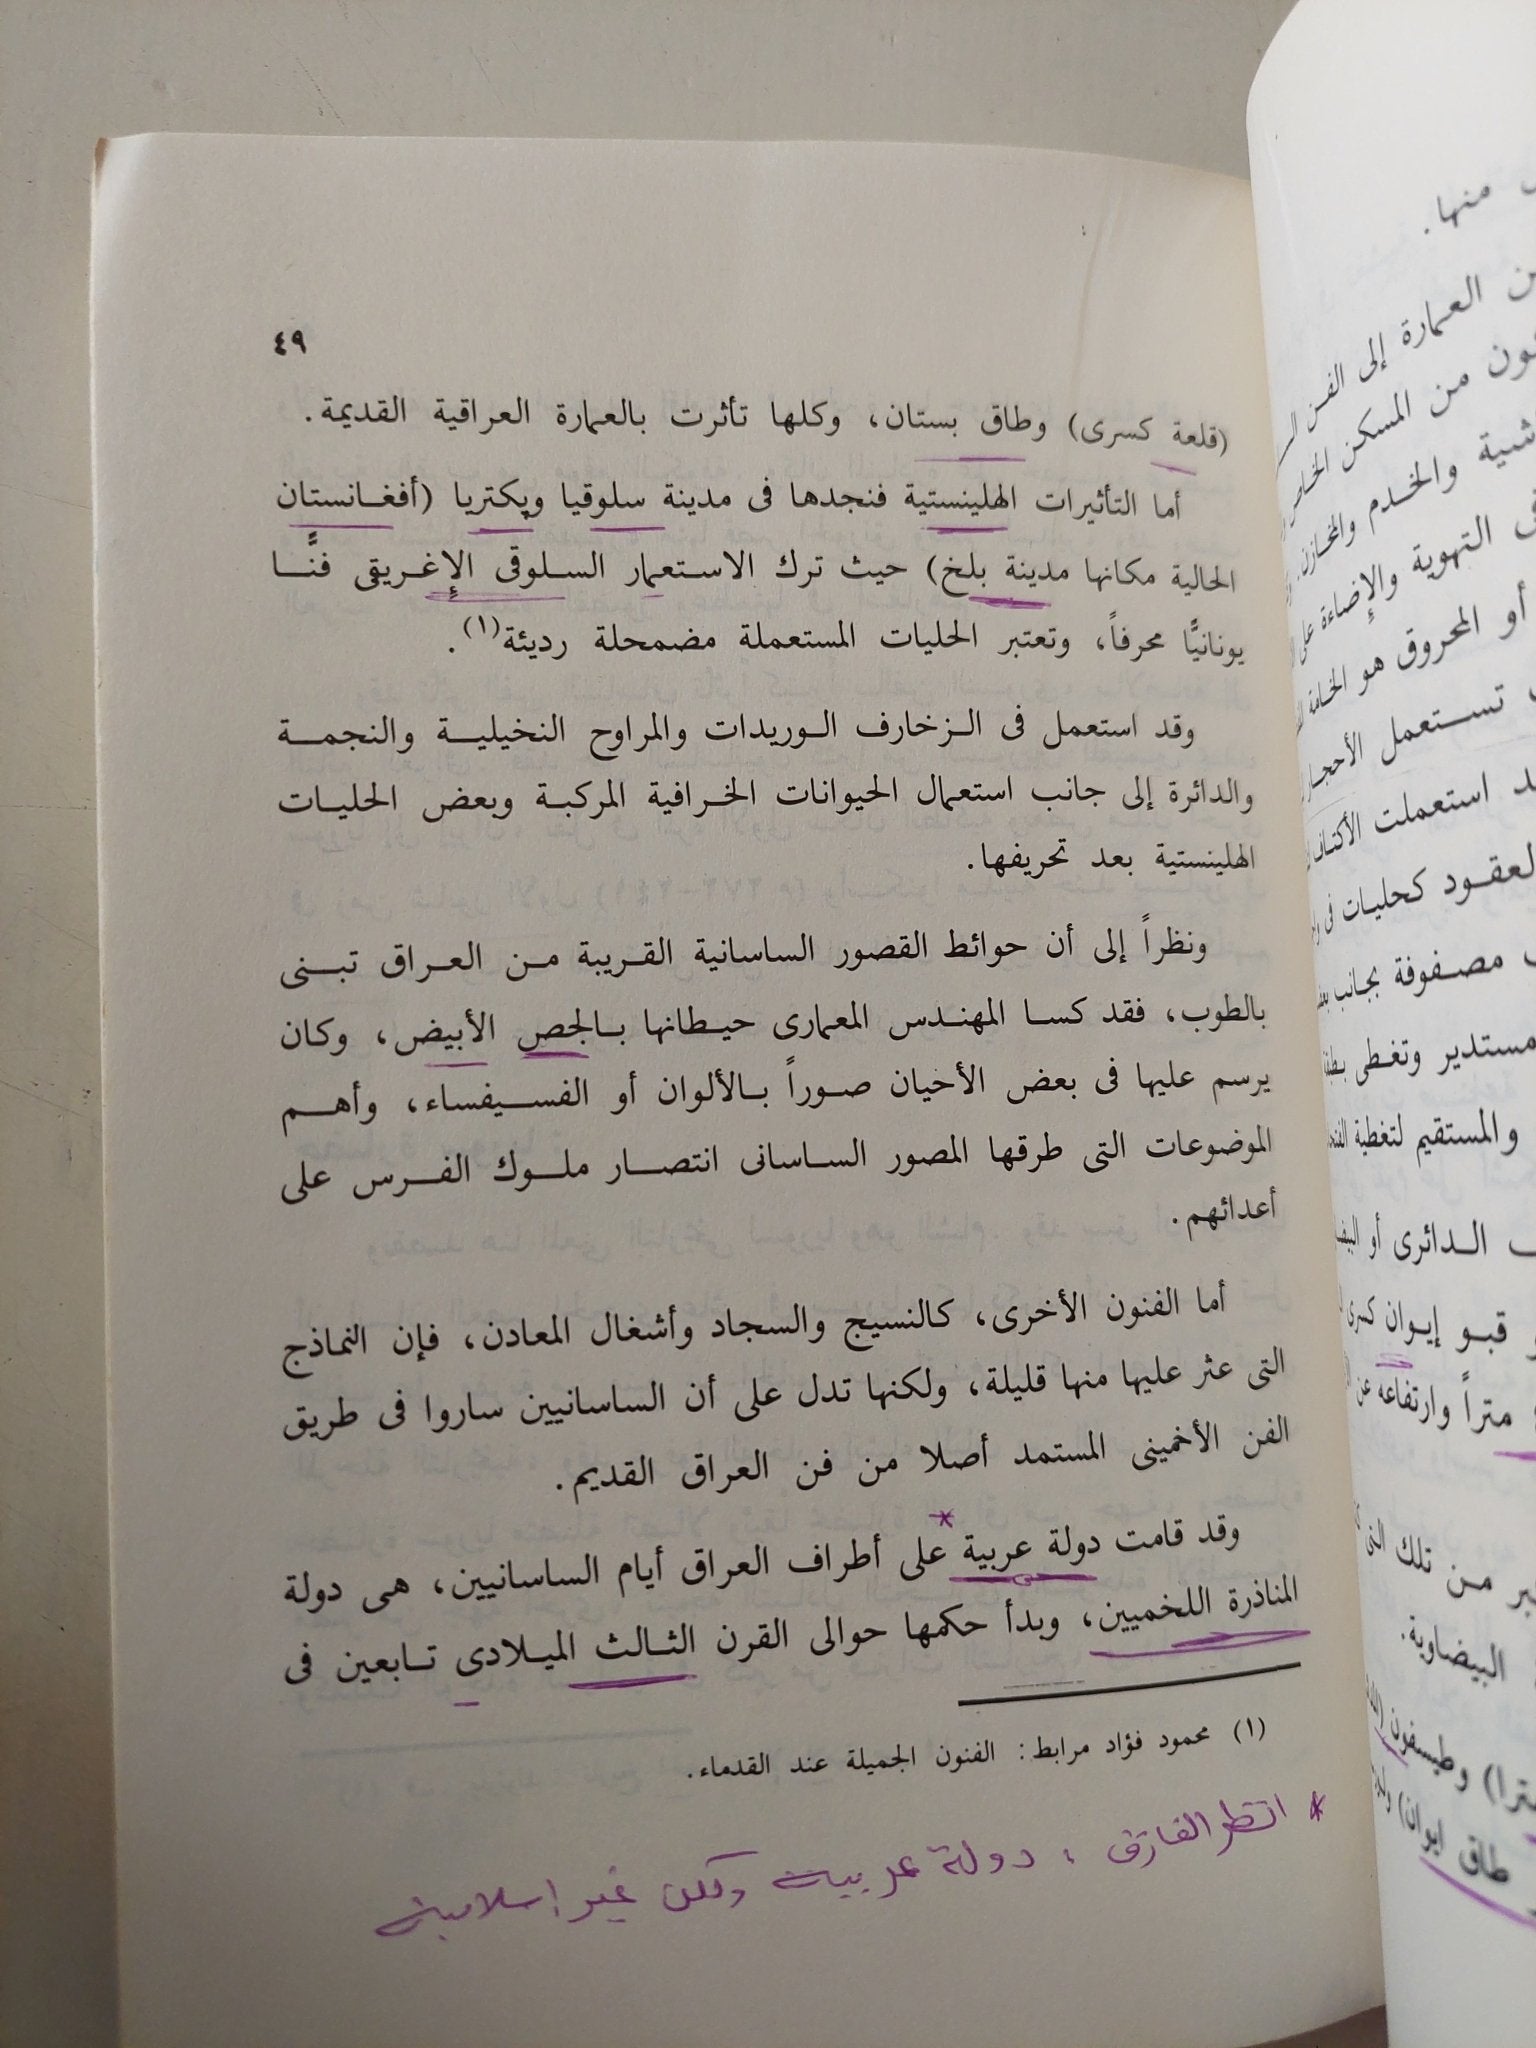 ٤٩
(قلعة كسرى) وطاق بستان، وكلها تأثرت بالعمارة العراقية القديمة.
أما التأثيرات الهلينستية فنجدها فى مدينة سلوقيا وبكتريا (أفغانستان
الحالية مكانها مدينة بلخ) حيث ترك الاستعمار السلوقى الإغريقى فنًّا
يونانيًّا محرفاً، وتعتبر الحليات المستعملة مضمحلة رديئة(١).
وقد استعمل فى الزخارف الوريدات والمراوح النخيلية والنجمة
والدائرة إلى جانب استعمال الحيوانات الخرافية المركبة وبعض الحليات
الهلينستية بعد تحريفها.
ونظراً إلى أن حوائط القصور الساسانية القريبة من العراق تبنى
بالطوب، فقد كسا المهندس المعمارى حيطانها بالجص الأبيض، وكان
يرسم عليها فى بعض الأحيان صوراً بالألوان أو الفسيفساء، وأهم
الموضوعات التى طرقها المصور الساسانى انتصار ملوك الفرس على
أعدائهم.
أما الفنون الأخرى، كالنسيج والسجاد وأشغال المعادن، فإن النماذج
التى عثر عليها منها قليلة، ولكنها تدل على أن الساسانيين ساروا فى طريق
الفن الأخمينى المستمد أصلا من فن العراق القديم.
وقد قامت دولة عربية * على أطراف العراق أيام الساسانيين، هى دولة
المناذرة اللخميين، وبدأ حكمها حوالى القرن الثالث الميلادى تابعين فى
(١) محمود فؤاد مرابط: الفنون الجميلة عند القدماء.
* انتظر الفارق : دولة عربية ولكن غير إسلامية
منها.
العمارة إلى الفن
من المسكن الخاص
والخدم والمخازن
التهوية والإضاءة
أو المحروق هو الخامة
تستعمل
استعملت الأكتاف
كحليات فى
مصفوفة بجانب
مستدير وتغطى
والمستقيم لتغطية
الدائرى أو
قبو إيوان كسرى
متراً وارتفاعه عن
من تلك التى
البيضاوية.
وطيسفون
طاق ايوان)